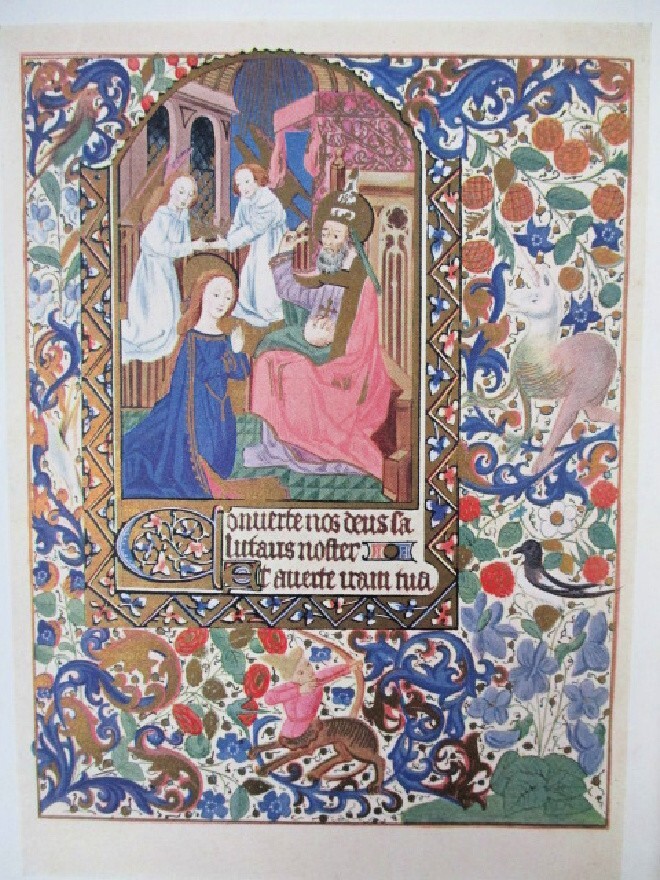 Conuerte nos deus sa
lutaris noster
Et auerte iram tua